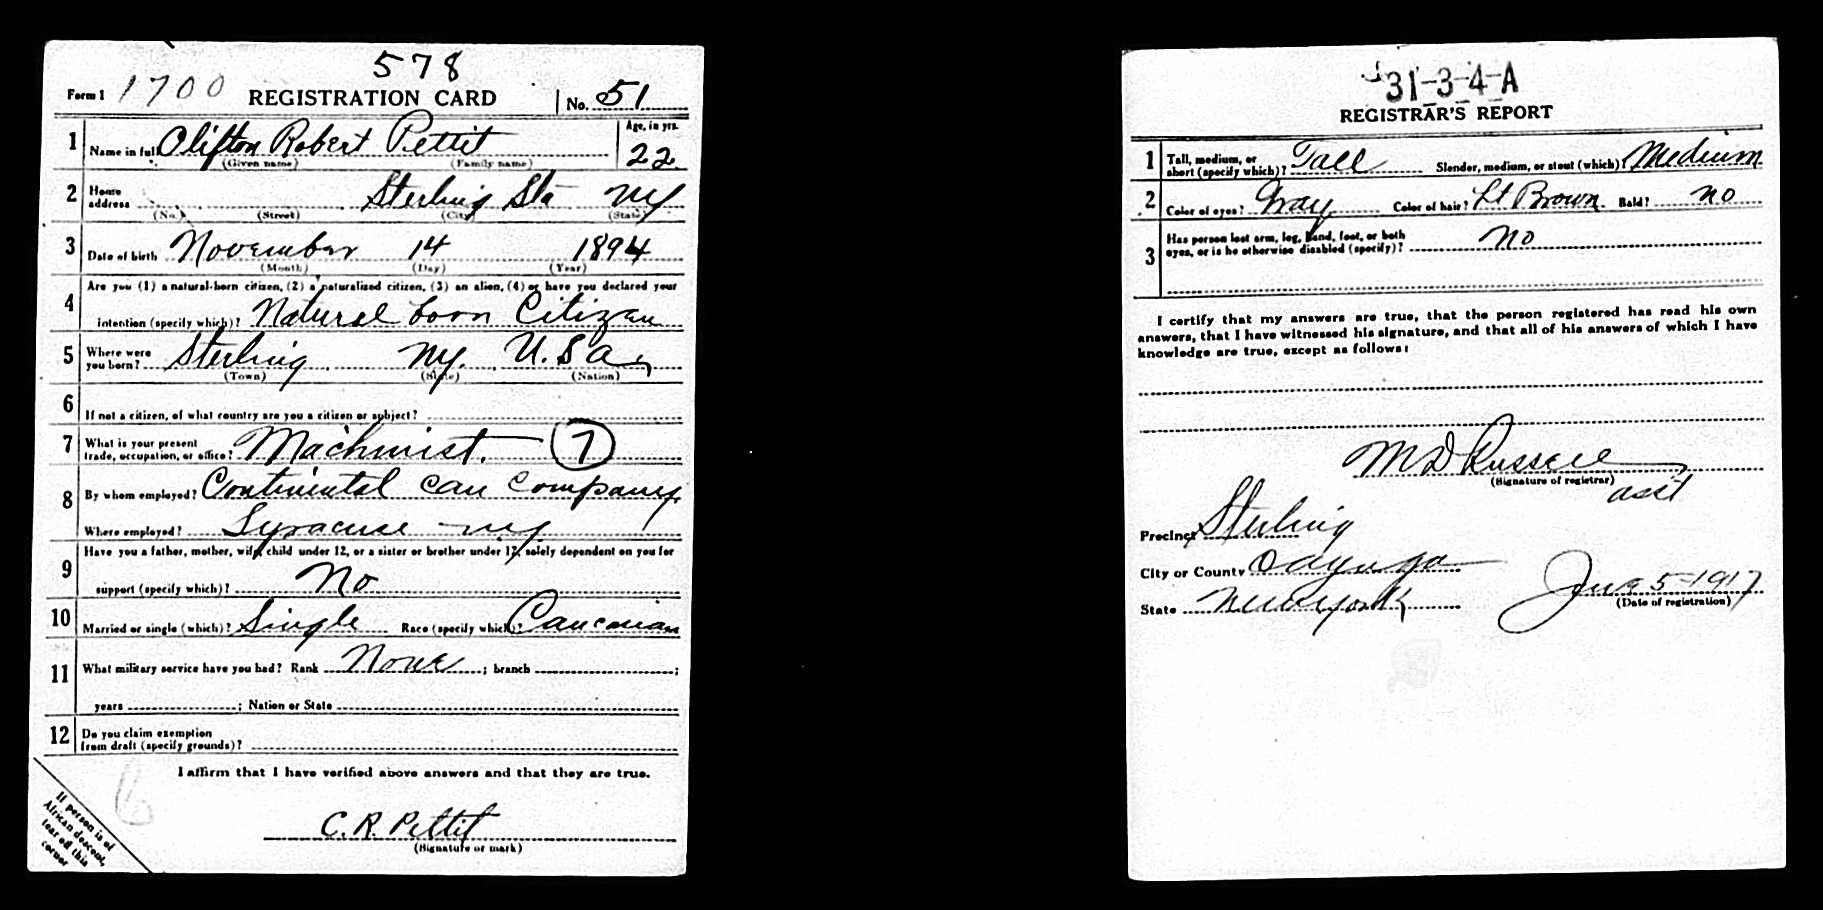 578
Form 1 1700 REGISTRATION CARD No. 51
1 Name in full Clifton Robert Pettit Age, in yrs. 22
(Given name) (Family name)
2 Home address Sterling Sta NY
(No.) (Street) (City) (State)
3 Date of birth November 14 1894
(Month) (Day) (Year)
4 Are you (1) a natural-born citizen, (2) a naturalized citizen, (3) an alien, (4) or have you declared your
intention (specify which)? Natural born Citizen
5 Where were you born? Sterling NY. U.S.A.
(Town) (State) (Nation)
6 If not a citizen, of what country are you a citizen or subject?
7 What is your present trade, occupation, or office? Machinist. 7
8 By whom employed? Continental Can Company
Where employed? Syracuse NY
9 Have you a father, mother, wife, child under 12, or a sister or brother under 12, solely dependent on you for
support (specify which)? No
10 Married or single (which)? Single Race (specify which)? Caucasian
11 What military service have you had? Rank None ; branch ;
years ; Nation or State
12 Do you claim exemption from draft (specify grounds)?
I affirm that I have verified above answers and that they are true.
C. R. Pettit
(Signature or mark)
If person is of
African descent,
tear off this
corner
31-3-4-A
REGISTRAR'S REPORT
1 Tall, medium, or short (specify which)? Tall Slender, medium, or stout (which)? Medium
2 Color of eyes? Gray Color of hair? Lt Brown Bald? no
3 Has person lost arm, leg, hand, foot, or both eyes, or is he otherwise disabled (specify)? no
I certify that my answers are true, that the person registered has read his own
answers, that I have witnessed his signature, and that all of his answers of which I have
knowledge are true, except as follows:
M D Russell
(Signature of registrar)
asst
Precinct Sterling
City or County Cayuga
State New York
June 5-1917
(Date of registration)